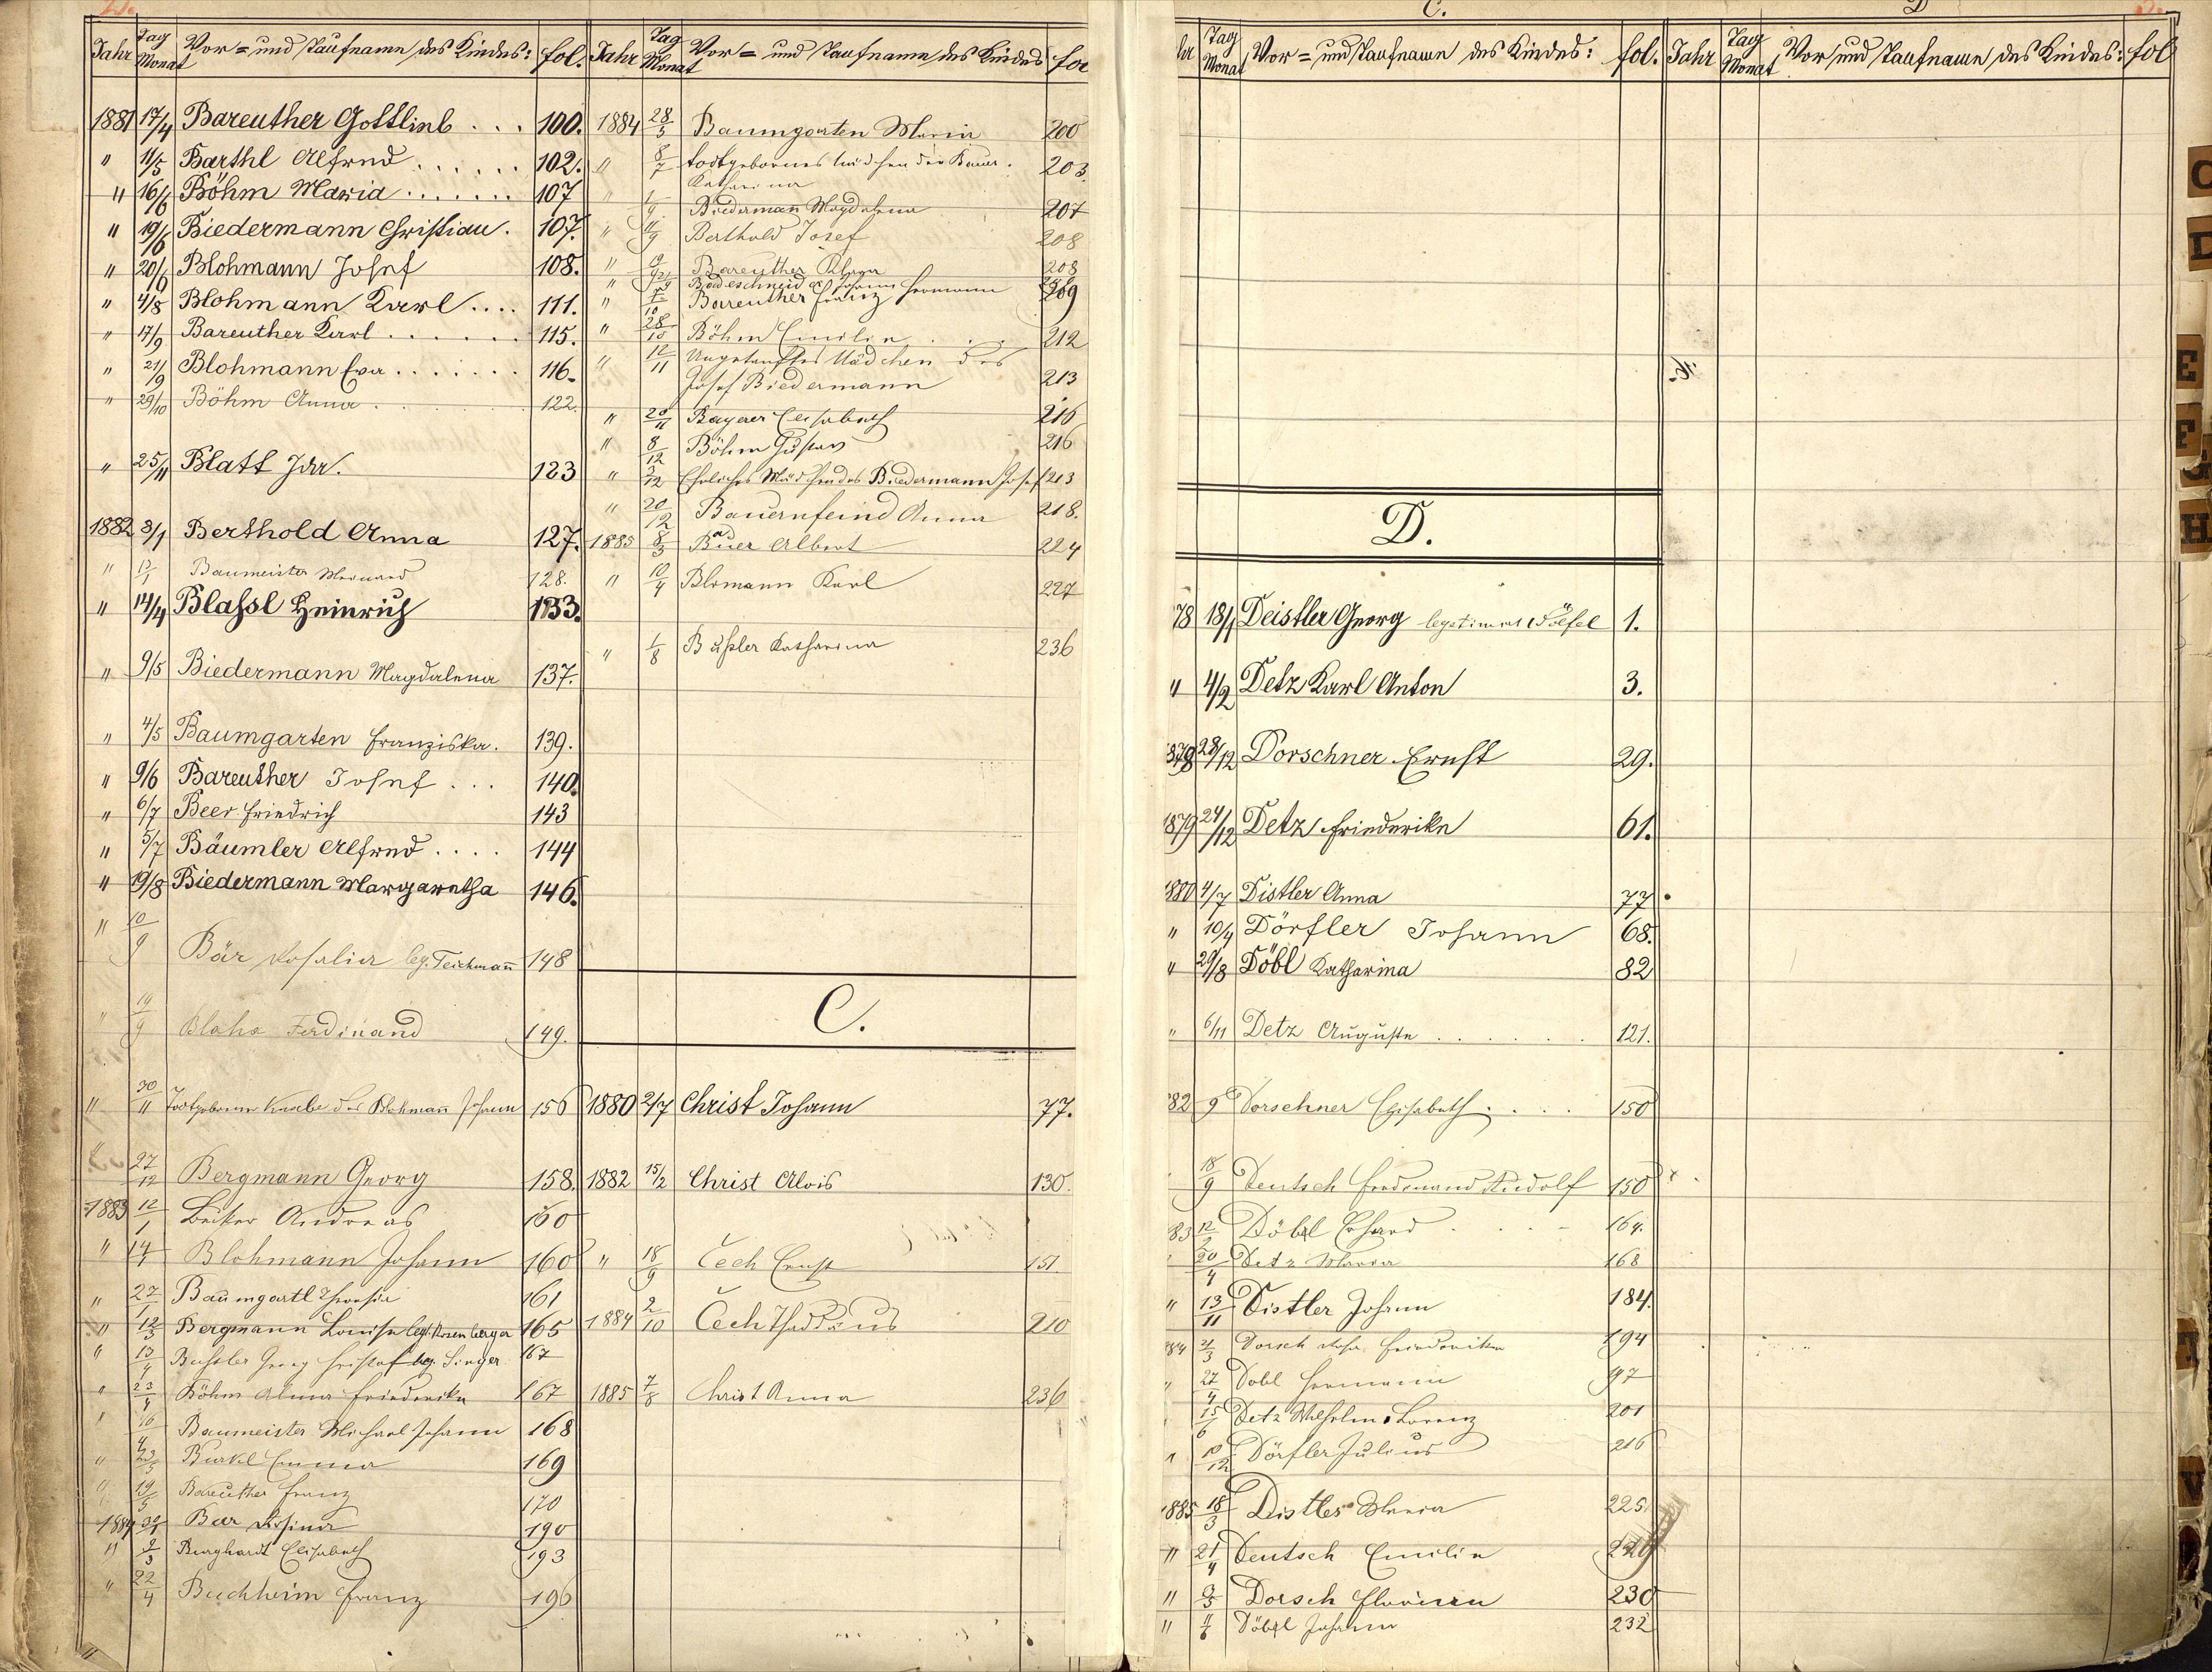 C.
D
Jahr Tag Monat Vor= und Taufname des Kindes: fol.
1881 17/4 Bareuther Gottlieb . . . 100.
" 11/5 Barthl Alfred . . . . . . 102.
" 16/6 Böhm Maria . . . . . . 107
" 19/6 Biedermann Christian . 107.
" 20/6 Blohmann Josef 108.
" 4/8 Blohmann Karl . . . . 111.
" 17/9 Bareuther Karl . . . . . . . 115.
" 21/9 Blohmann Eva . . . . . . . 116.
" 29/10 Böhm Anna . . . . . . 122.
" 25/11 Blatt Ida. 123
1882 3/1 Berthold Anna 127.
" 13/1 Baumeister 128.
" 14/4 Blassl Heinrich 133.
" 9/5 Biedermann Magdalena 137.
" 4/5 Baumgarten Franziska. 139.
" 9/6 Bareuther Josef . . . 140.
" 6/7 Beer Friedrich 143
" 5/7 Bäumler Alfred . . . . 144
" 19/8 Biedermann Margaretha 146.
" 10/9 Bär Rosalia leg. Teichmañ 148
" 19/9 Blaha Ferdinand 149.
" 30/11 Todtgeborner Knabe des Blohmañ Johann 156
" 27/12 Bergmann Georg 158.
1883 12/1 Andreas 160
" 14/1 Blohmann Johann 160
" 27/1 Baumgartl Theresia 161
" 12/3 Bergmann Louise legt. Rosenberger 165
" 13/4 Bussler Georg Christof leg. Singer 167
" 23/4 Böhm Alma Friederike 167
" 16/4 Baumeister Michael Johann 168
" 23/5 Burkl Emma 169
" 19/5 Bareuther Franz 170
1884 30/1 Beer Rosina 190
" 2/3 Burghardt Elisabeth 193
" 22/4 Buchheim Franz 196
Jahr Tag Monat Vor= und Taufname des Kindes fol
1884 28/5 Baumgarten Maria 200
" 8/7 todtgebornes Mädchen der Bauer.
Katharina 203.
" 1/9 Biedermann Magdalena 207
" 11/9 Berthold Josef 208
" Bareuther 208
" Badeschneider Johann Hermann
" 7/10 Bareuther Franz 209
" 28/10 Böhm Emilie . . . . 212
" 12/11 Ungetauftes Mädchen des
Josef Biedermann 213
" 20/11 Bayerer Elisabeth 216
" 8/12 Böhm Gustav 216
" 3/12 Eheliches Mädchen des Biedermann Josef 213
" 20/12 Bauernfeind Anna 218.
1885 8/3 Bauer Albert 224
" 10/4 Blomann Karl 227
" 1/8 Bußler Katharina 236
C.
1880 2/7 Christ Johann 77.
1882 15/2 Christ Alois 130.
" 18/9 Čech Ernst 151.
1884 2/10 Čech Thaddäus 210
1885 7/8 Christ Anna 236
Tag Monat Vor= und Taufname des Kindes: fol.
D.
78 18/1 Deistler Georg legitimirt Wölfel 1.
" 4/2 Detz Karl Anton 3.
1878 28/12 Dorschner Ernst 29.
1879 24/12 Detz Friederike 61.
1880 4/7 Distler Anna 77.
" 10/4 Dörfler Johann 68.
" 29/8 Döbl Katharina 82
" 6/11 Detz Auguste . . . . . . 121.
82 9 Dorschner Elisabeth . . . . 150
18/9 Deutsch Ferdinand Rudolf 150
83 12/2 Döbl Erhard 164.
20/4 Detz Maria 168
" 13/11 Distler Johann 184.
884 2/3 Dorsch Friederike 194
" 27/4 Döbl Hermann 197
15/6 Detz Wilhelm Lorenz 201
" 10/12 Dörfler Julius 216
1885 18/3 Deistler Maria 225.
" 21/4 Deutsch Emilie 229
" 3/5 Dorsch 230
" 4/6 Döbl Johann 232
Jahr Tag Monat Vor und Taufname des Kindes: fol
C
D
E
F
H
V